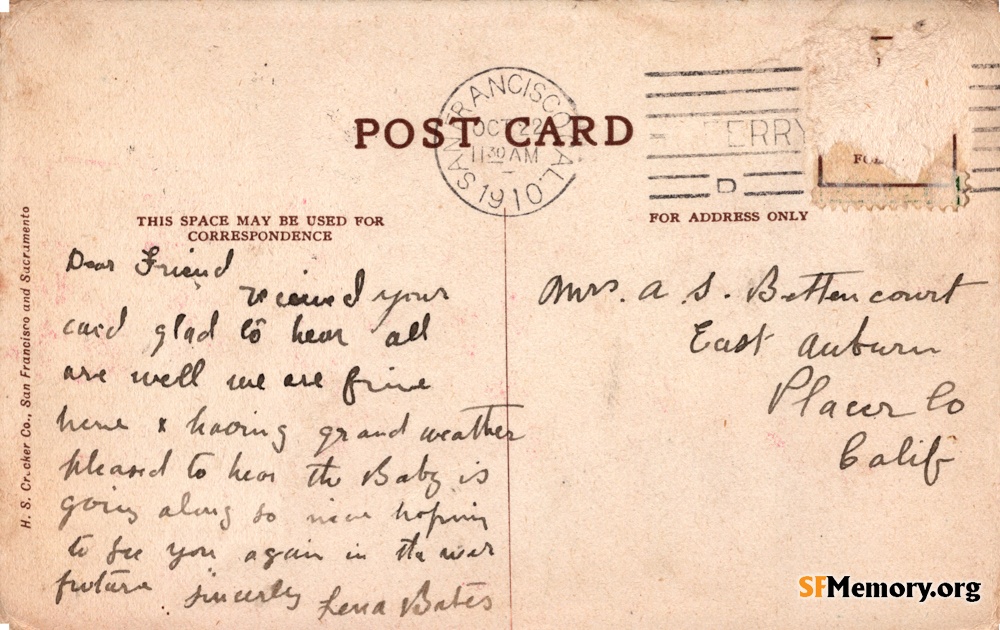 POST CARD
SAN FRANCISCO, CAL.
OCT 22
11 30 AM
1910
FERRY
D
THIS SPACE MAY BE USED FOR
CORRESPONDENCE
FOR ADDRESS ONLY
H. S. Crocker Co., San Francisco and Sacramento
Dear Friend
recieved your
card glad to hear all
are well we are fine
here & having grand weather
pleased to hear the Baby is
going along so nice hoping
to see you again in the near
future sincerely Lena Bates
Mrs. A. S. Bettencourt
East Auburn
Placer Co
Calif
SFMemory.org